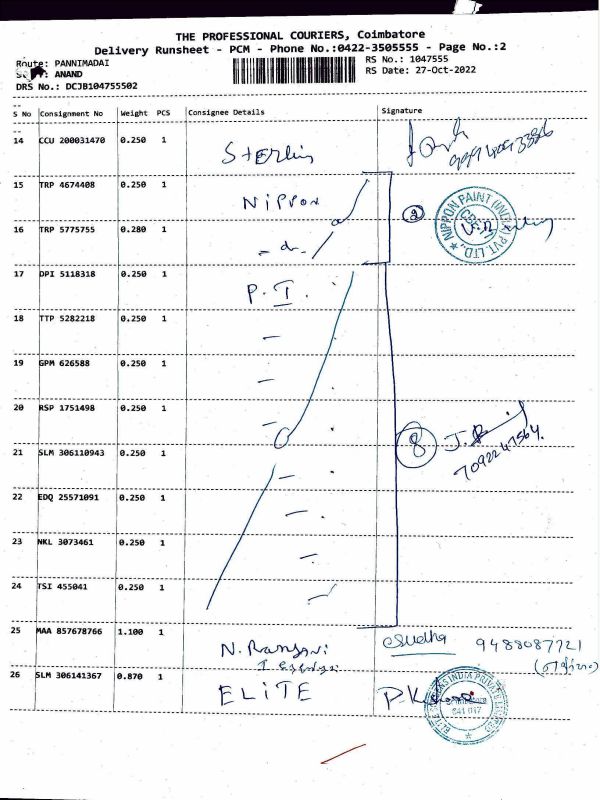 THE PROFESSIONAL COURIERS, Coimbatore
Delivery Runsheet - PCM - Phone No.:0422-3505555 - Page No.:2
Route: PANNIMADAI
RS No.: 1047555
ANAND
RS Date: 27-Oct-2022
DRS No.: DCJB104755502
S No Consignment No Weight PCS Consignee Details Signature
14 CCU 200031470 0.250 1
15 TRP 4674408 0.250 1 NIPPON
16 TRP 5775755 0.280 1 - do -
2
NIPPON PAINT (INDIA) PVT. LTD.,
17 DPI 5118318 0.250 1 P. I.
18 TTP 5282218 0.250 1
19 GPM 626588 0.250 1
20 RSP 1751498 0.250 1
21 SLM 306110943 0.250 1
8 7092247564.
22 EDQ 25571091 0.250 1
23 NKL 3073461 0.250 1
24 TSI 455041 0.250 1
25 MAA 857678766 1.100 1 N. Ranjani Sudha 9488087721
26 SLM 306141367 0.870 1 ELITE
INDIA PRIVATE LIMITED
641 017